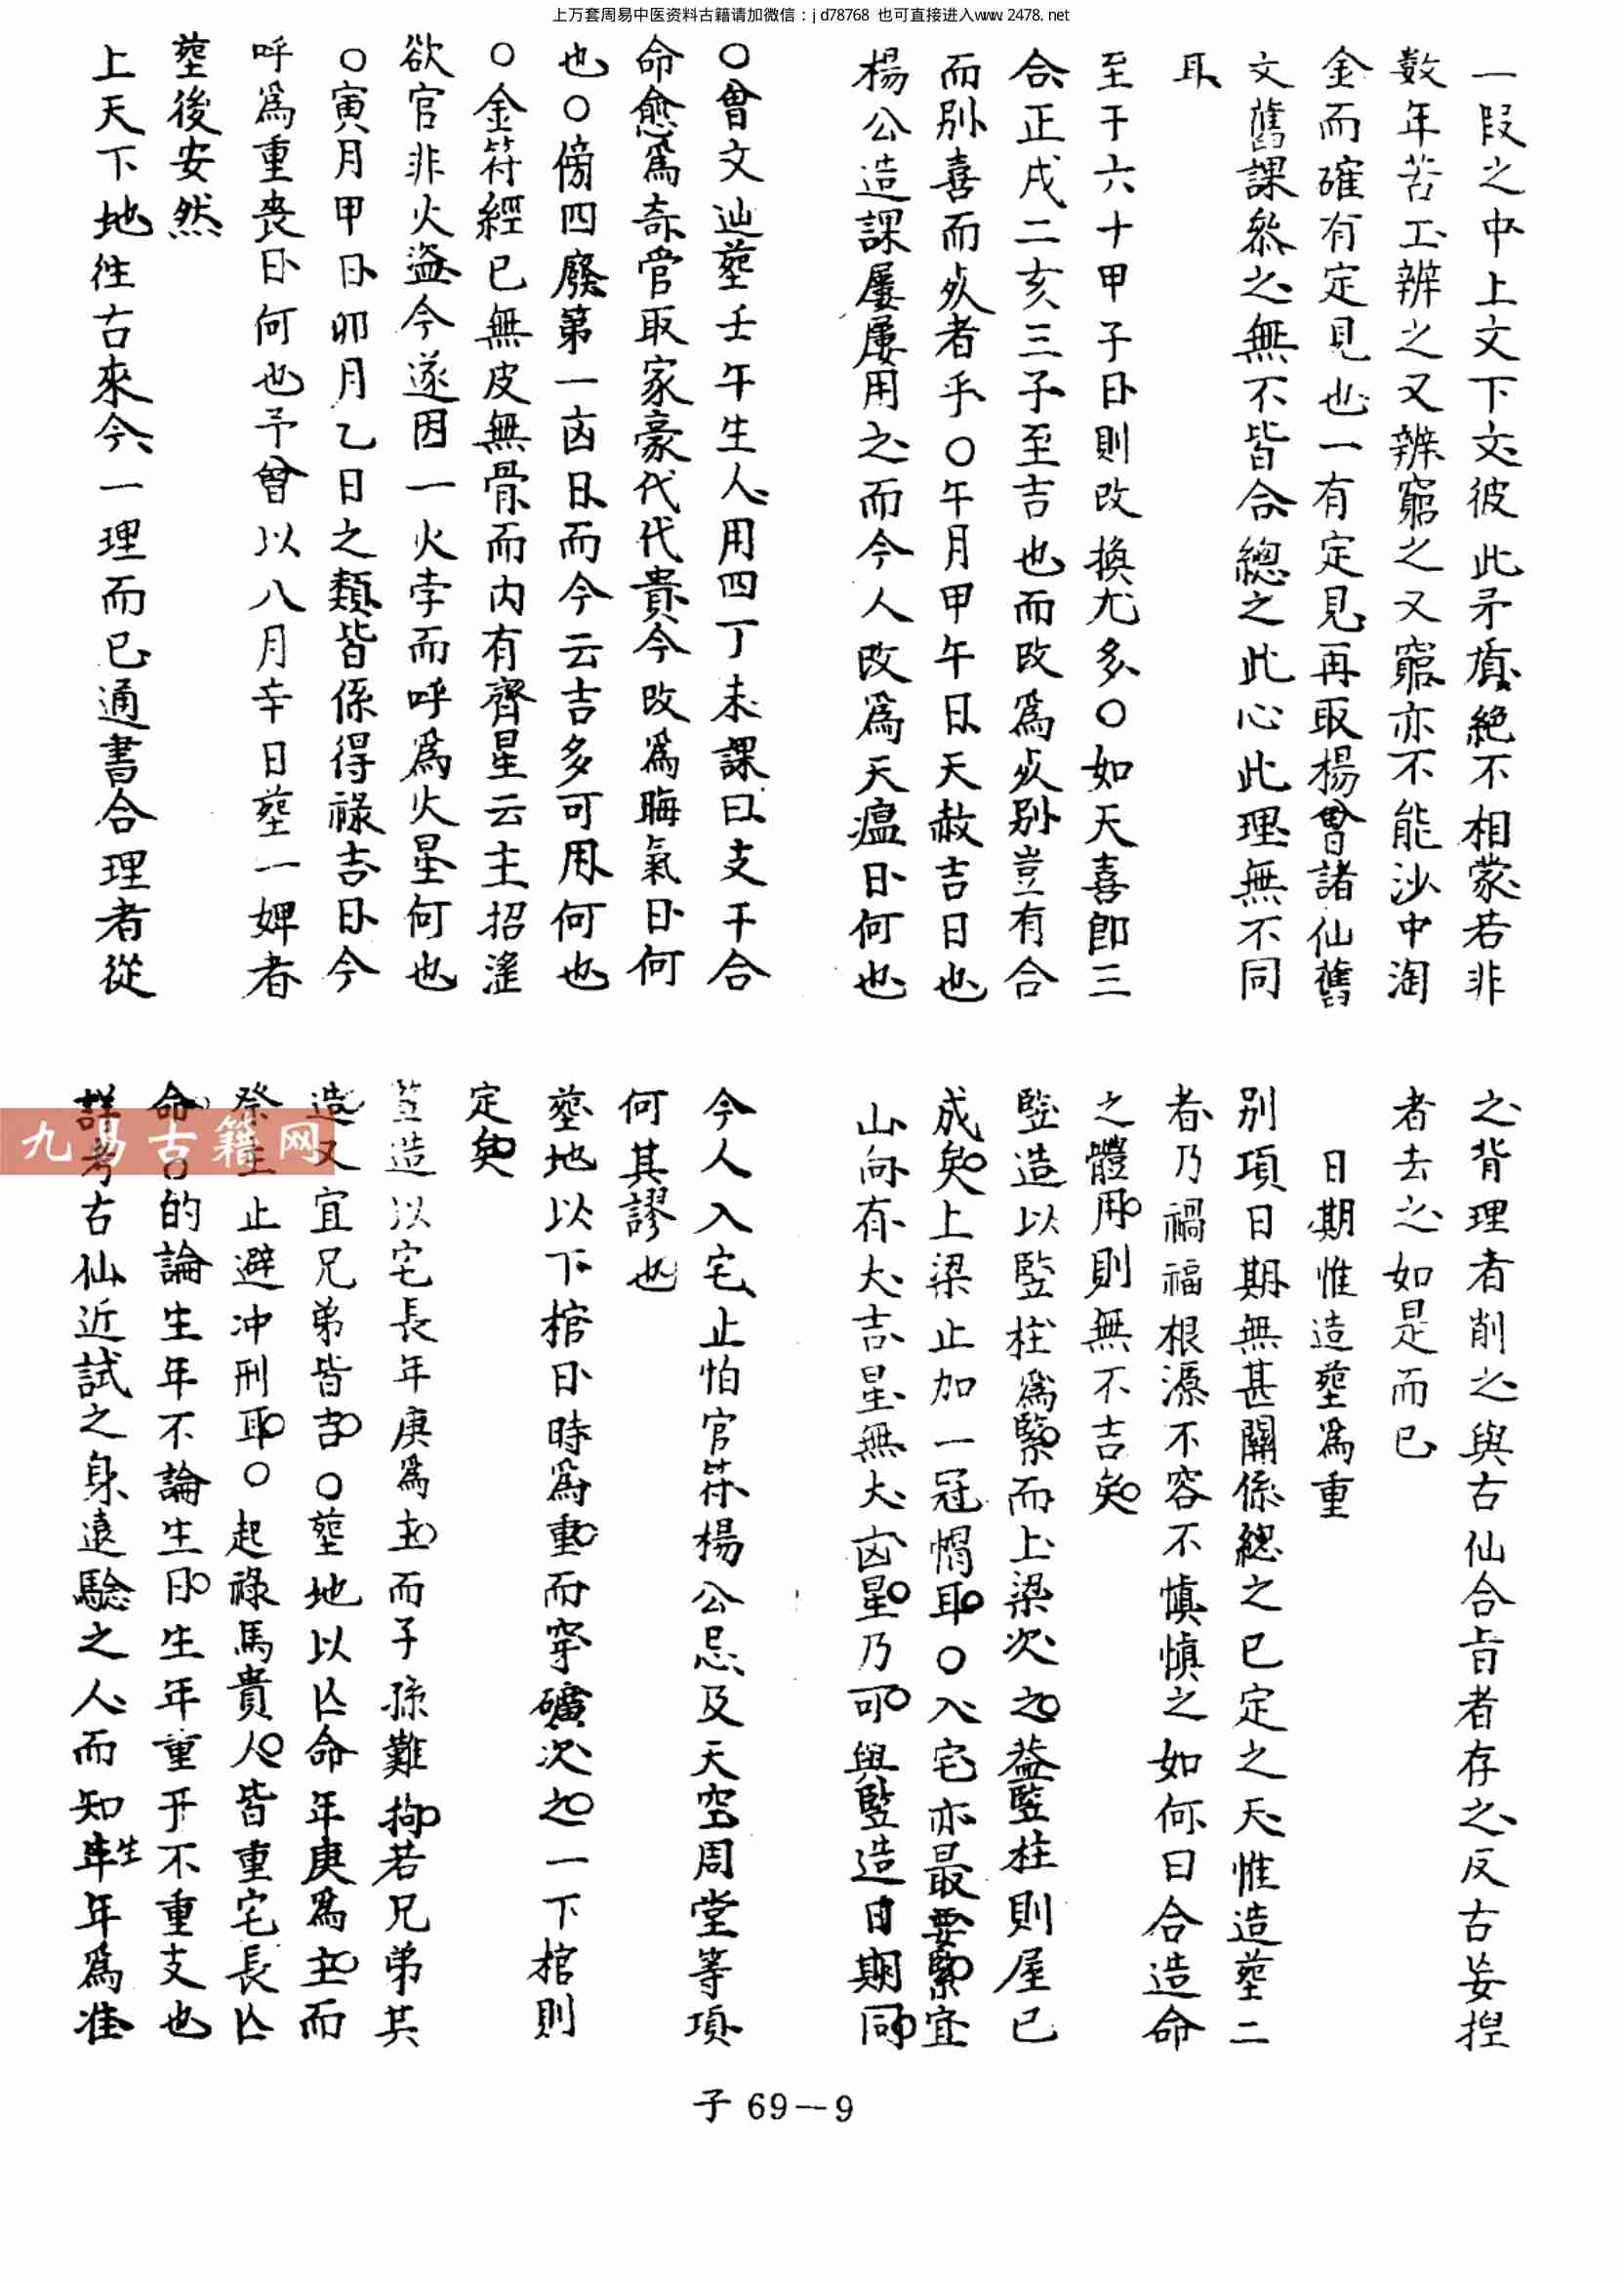 上万套周易中医资料古籍请加微信：jd78768 也可直接进入www.2478.net
一段之中上文下文彼此矛盾絕不相蒙若非
數年苦工辨之又辨窮之又窮亦不能沙中淘
金而確有定見也一有定見再取楊曾諸仙舊
文舊課叅之無不皆合總之此心此理無不同
耳
至于六十甲子日則改換尤多○如天喜即三
合正戌二亥三子至吉也而改爲㱕别豈有合
而别喜而㱕者乎○午月甲午日天赦吉日也
楊公造課屢屢用之而今人改爲天瘟日何也
○曾文辿塟壬午生人用四丁未課曰支干合
命愈爲奇管取家豪代代貴今改爲晦氣日何
也○傍四廢第一㐫日而今云吉多可用何也
○金符經已無皮無骨而内有齊星云主招滛
欲官非火盜今遂因一火字而呼爲火星何也
○寅月甲日卯月乙日之類皆係得祿吉日今
呼爲重喪日何也予曾以八月辛日塟一婢者
塟後安然
上天下地徃古來今一理而已通書合理者從
之背理者削之與古仙合旨者存之反古妄揑
者去之如是而已
日期惟造塟爲重
别項日期無甚關係總之已定之天惟造塟二
者乃禍福根源不容不愼愼之如何曰合造命
之體用則無不吉矣
竪造以竪柱爲緊而上梁次之蓋竪柱則屋已
成矣上梁止加一冠㡌耳○入宅亦最要緊宜
山向有大吉星無大㐫星乃可與竪造日期同
今人入宅止怕官符楊公忌及天空周堂等項
何其謬也
塟地以下棺日時爲重而穿礦次之一下棺則
定矣
豎造以宅長年庚爲主而子孫難拘若兄弟其
造又宜兄弟皆吉○塟地以亾命年庚爲主而
祭主止避冲刑耳○起祿馬貴人皆重宅長亾
命○的論生年不論生日生年重干不重支也
詳考古仙近試之身遠驗之人而知生年爲准
子69—9
九易古籍网